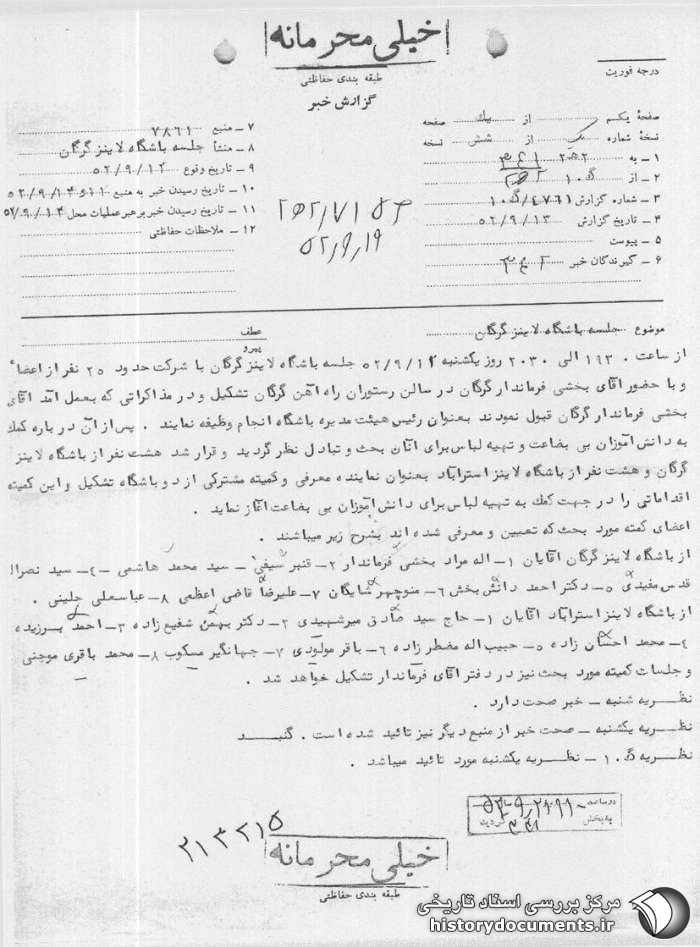 خیلی محرمانه
طبقه بندی حفاظتی
گزارش خبر
درجه فوریت
صفحهٔ یکم از یک صفحه
نسخهٔ شماره یک از شش نسخه
۱ـ به
۲ـ از
۳ـ شماره گزارش
۴ـ تاریخ گزارش ۵۲/۹/۱۳
۵ـ پیوست
۶ـ گیرندگان خبر
۷ـ منبع ۷۸۶۱
۸ـ منشأ جلسه باشگاه لاینز گرگان
۹ـ تاریخ وقوع
۱۰ـ تاریخ رسیدن خبر به منبع
۱۱ـ تاریخ رسیدن خبر برهبر عملیات محل
۱۲ـ ملاحظات حفاظتی
۵۲/۹/۱۹
موضوع جلسه باشگاه لاینز گرگان
عطف
پیرو
از ساعت الی ۲۰۳۰ روز یکشنبه جلسه باشگاه لاینز گرگان با شرکت حدود ۲۵ نفر از اعضاء
و با حضور اقای بخشی فرماندار گرگان در سالن رستوران راه آهن گرگان تشکیل و در مذاکراتی که بعمل آمد آقای
بخشی فرماندار گرگان قبول نمودند بعنوان رئیس هیئت مدیره باشگاه انجام وظیفه نمایند . پس از آن در باره کمک
به دانش آموزان بی بضاعت و تهیه لباس برای آنان بحث و تبادل نظر گردید و قرار شد هشت نفر از باشگاه لاینز
گرگان و هشت نفر از باشگاه لاینز استراباد بعنوان نماینده معرفی و کمیته مشترکی از دو باشگاه تشکیل و این کمیته
اقداماتی را در جهت کمک به تهیه لباس برای دانش آموزان بی بضاعت آغاز نماید .
اعضای کمته مورد بحث که تعیین و معرفی شده اند بشرح زیر میباشند .
از باشگاه لاینز گرگان آقایان ۱ـ اله مراد بخشی فرماندار ۲ـ قنبر سیفی ـ سید محمد هاشمی ـ ۴ـ سید نصراله
قدس مفیدی ۵ـ دکتر احمد دانش بخش ۶ـ منوچهر شایگان ۷ـ علیرضا قاضی اعظمی ۸ـ عباسعلی جلینی .
از باشگاه لاینز استراباد اقایان ۱ـ حاج سید صادق میرشهیدی ۲ـ دکتر بهمن شفیع زاده ۳ـ احمد برزیده
۴ـ محمد احسان زاده ۵ـ حبیب اله مضطر زاده ۶ـ باقر مولودی ۷ـ جهانگیر مسکوب ۸ـ محمد باقری موجنی
و جلسات کمیته مورد بحث نیز در دفتر اقای فرماندار تشکیل خواهد شد .
نظریه شنبه ـ خبر صحت دارد .
نظریه یکشنبه ـ صحت خبر از منبع دیگر نیز تائید شده است . گنبد
نظریه ۱۰ گ ـ نظریه یکشنبه مورد تائید میباشد .
به بخش
گردید
۲۱۳۲۱۵
خیلی محرمانه
طبقه بندی حفاظتی
مرکز بررسی اسناد تاریخی
historydocuments.ir